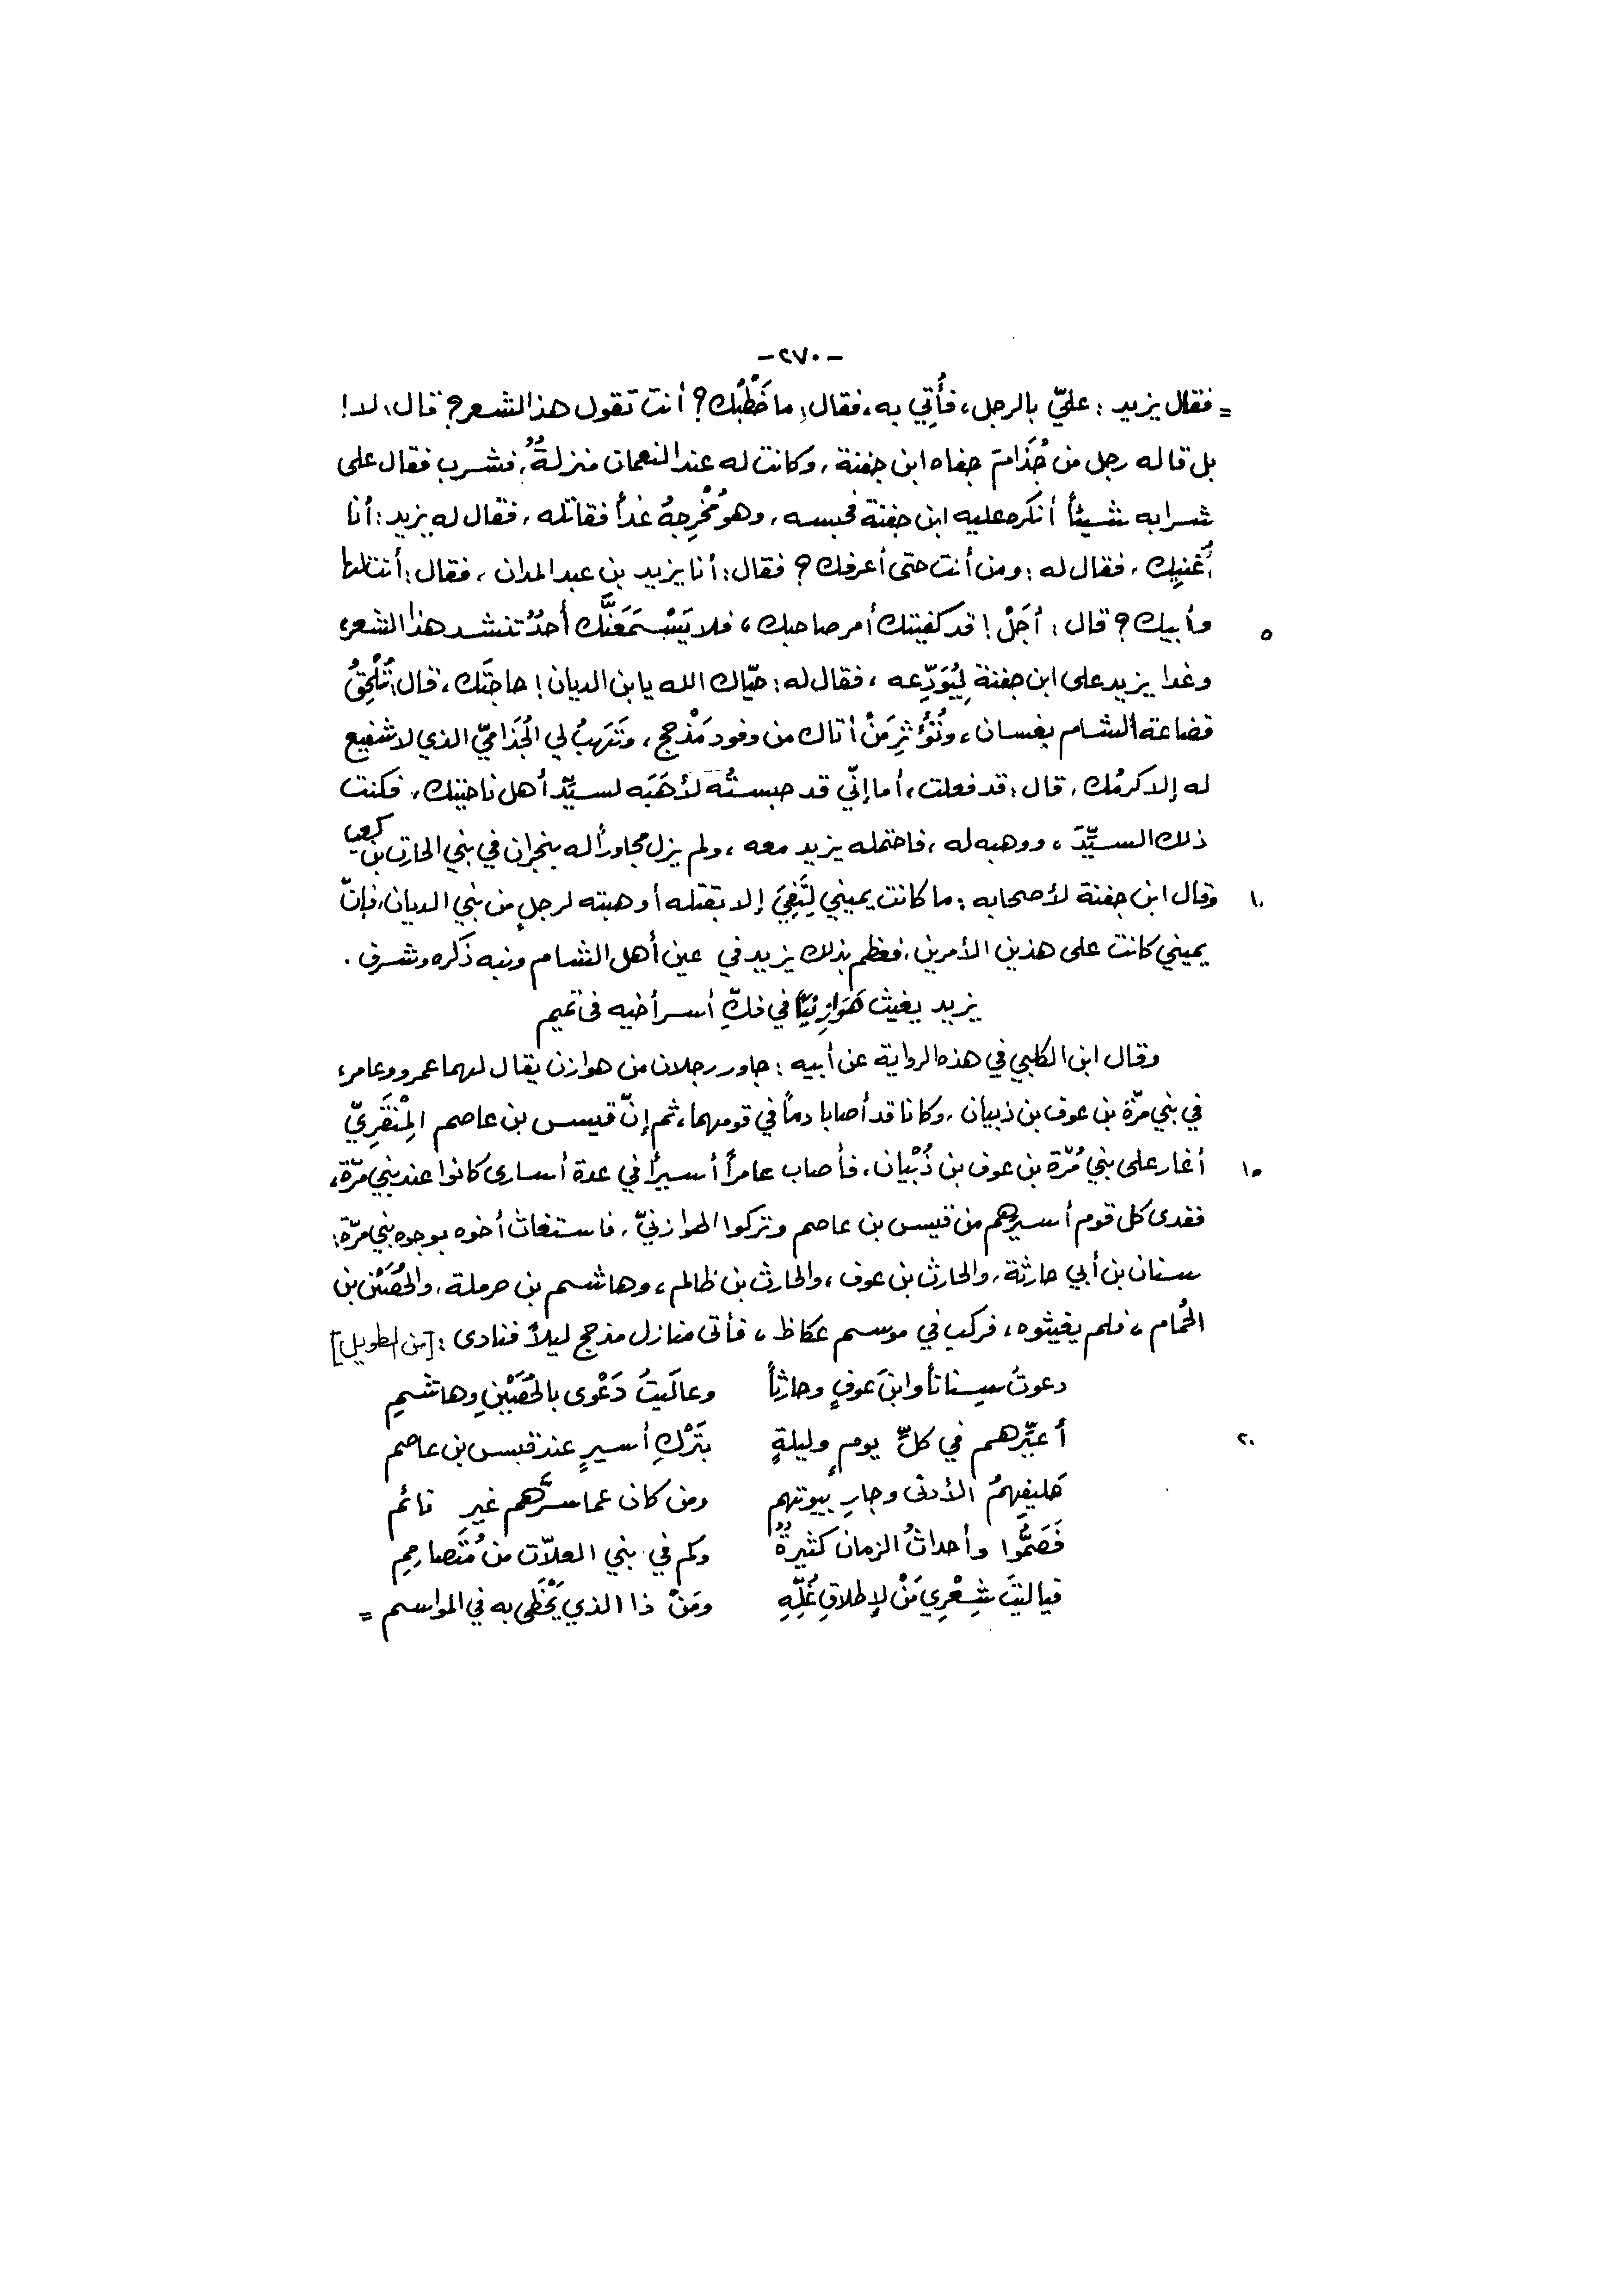 -٢٧٠-
= فقال يزيد : عليّ بالرجل، فأُتِي به، فقال: ما خَطْبُك؟ أنت تقول هذا الشعر؟ قال: لا!
بل قاله رجل من جُذَامَ جفاه ابن جفنة، وكانت له عند النعمان منزلةٌ، فشرب فقال على
شرابه شيئاً أنكره عليه ابن جفنة فحبسه، وهو مُخْرِجهُ غداً فقاتله، فقال له يزيد: أنا
أُغنيك، فقال له : ومن أنت حتى أعرفك؟ فقال: أنا يزيد بن عبد المدان، فقال: أنت لها
وأبيك؟ قال: أجَلْ! قد كفيتك أمر صاحبك، فلا يَسْمَعَنَّك أحدٌ تنشد هذا الشعر،
٥
وغدا يزيد على ابن جفنة لِيُوَدِّعه، فقال له: حيّاك الله يا بن الديان! حاجتَك، قال: تُلْحِقُ
قضاعة الشام بغسان، وتُؤْثرِ مَنْ أتاك من وفود مَذْحج، وتَهبُ لي الجُذَاميّ الذي لا شفيع
له إلا كرمُك، قال: قد فعلت، أما إنّي قد حبستُه لأهَبَه لسيِّد أهل ناحيتك، فكنت
ذلك السيِّدَ، ووهبه له، فاحتمله يزيد معه، ولم يزل مجاوراً له بنجران في بني الحارث بن كعب
وقال ابن جفنة لأصحابه : ما كانت يميني لِتَفِيَ إلا بقتله أو هبته لرجلٍ من بني الديان، فإنّ
١٠
يميني كانت على هذين الأمرين، فعظم بذلك يزيد في عين أهل الشام ونبه ذكره وشرف .
يزيد يغيث هَوَازِنيّاً في فكِّ أسر أخيه في تميم
وقال ابن الكلبي في هذه الرواية عن أبيه : جاور رجلان من هوازن يقال لهما عمرو وعامر،
في بني مرّة بن عوف بن ذبيان، وكانا قد أصابا دماً في قومهما، ثم إنّ قيس بن عاصم المِنْقَرِيّ
أغار على بني مُرّة بن عوف بن ذُبْيان، فأصاب عامراً أسيراً في عدة أسارى كانوا عند بني مرّة،
١٥
ففدى كل قوم أسيرهم من قيس بن عاصم وتركوا الهوازنيّ، فاستغاث أخوه بوجوه بني مرّة:
سنان بن أبي حارثة، والحارث بن عوف، والحارث بن ظالم، وهاشم بن حرملة، والحُصَيْن بن
الحُمام، فلم يغيثوه، فركب في موسم عكاظ، فأتى منازل مذحج ليلاً فنادى : [من الطويل]
دعوتُ سِناناً وابنَ عوفٍ وحارثاً وعالَيتُ دَعْوى بالحُصَيْنِ وهاشمِ
أعيِّرهم في كلِّ يومٍ وليلةٍ بتَرْكِ أسيرٍ عند قيس بن عاصم
٢٠
حَليفِهمُ الأدنى وجارِ بيوتهم ومن كان عما سرَّهم غير نائم
فَصَمُّوا وأحداثُ الزمان كثيرةٌ وكم في بني العلاّت من مُتَصاممِ
فيا ليتَ شِعْرِي مَنْ لإطلاقِ غُلِّهِ ومَنْ ذا الذي يَحْظَى به في المواسم =